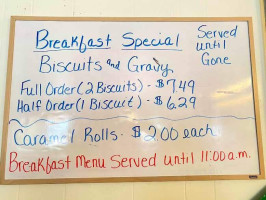 Breakfast Special
Served
until
Gone
Biscuits and Gravy
Full Order (2 Biscuits) - $7.49
Half Order (1 Biscuit) - $6.29
Caramel Rolls - $2.00 each
Breakfast Menu Served until 11:00 a.m.